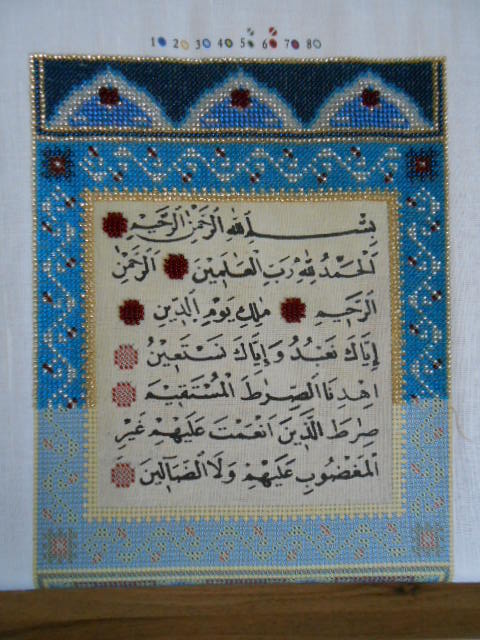 1 2 3 4 5 6 7 8
بِسْــمِ اللهِ الرَّحْمٰنِ الرَّحِيْمِ
اَلْحَمْدُ لِلّٰهِ رَبِّ الْعٰلَمِيْنَ الرَّحْمٰنِ
الرَّحِيْمِ مٰلِكِ يَوْمِ الدِّيْنِ
اِيَّاكَ نَعْبُدُ وَاِيَّاكَ نَسْتَعِيْنُ
اِهْدِنَا الصِّرَاطَ الْمُسْتَقِيْمَ
صِرَاطَ الَّذِيْنَ اَنْعَمْتَ عَلَيْهِمْ غَيْرِ
الْمَغْضُوْبِ عَلَيْهِمْ وَلَا الضَّآلِّيْنَ